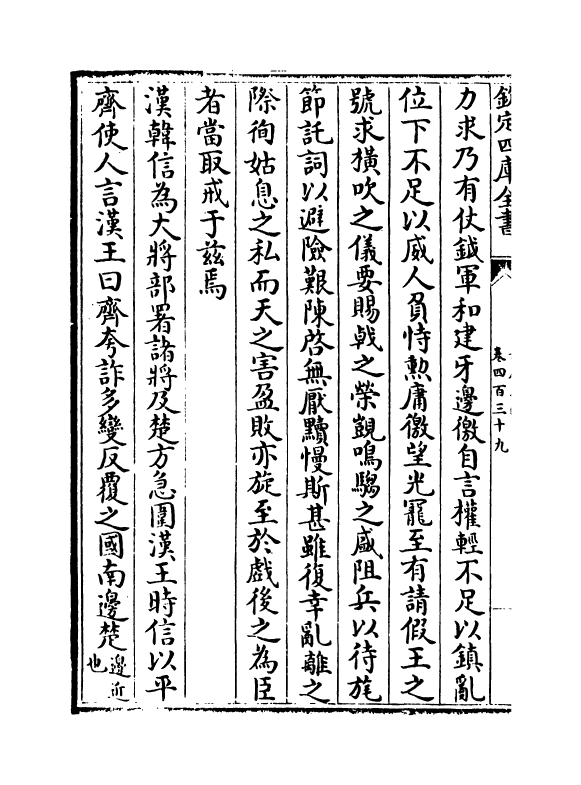 欽定四庫全書
卷四百三十九
力求乃有仗鉞軍和建牙邊徼自言權輕不足以鎮亂
位下不足以威人負恃勲庸徼望光寵至有請假王之
號求橫吹之儀要賜㦸之榮覬鳴騶之盛阻兵以待旄
節託詞以避險艱陳啓無厭黷慢斯甚雖復幸亂離之
際徇姑息之私而天之害盈敗亦旋至於戲後之為臣
者當取戒于茲焉
漢韓信為大將部署諸將及楚方急圍漢王時信以平
齊使人言漢王曰齊夸詐多變反覆之國南邊楚邊近也